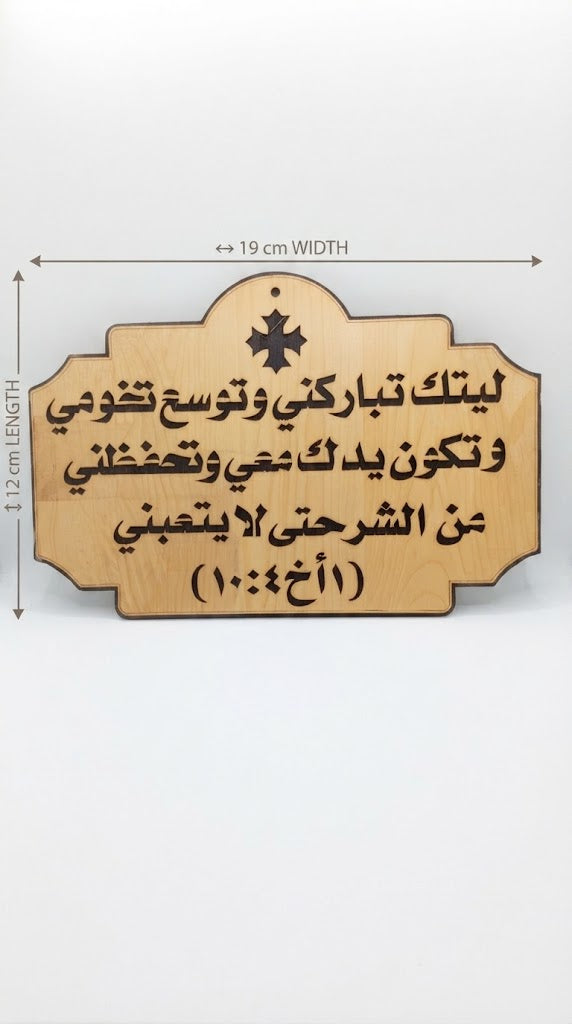 ↔ 19 cm WIDTH
↕ 12 cm LENGTH
ليتك تباركني وتوسع تخومي
وتكون يدك معي وتحفظني
من الشر حتى لا يتعبني
(١أخ٤:١٠)